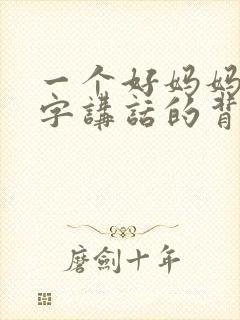 一个好妈妈
字講話的背
磨劍十年